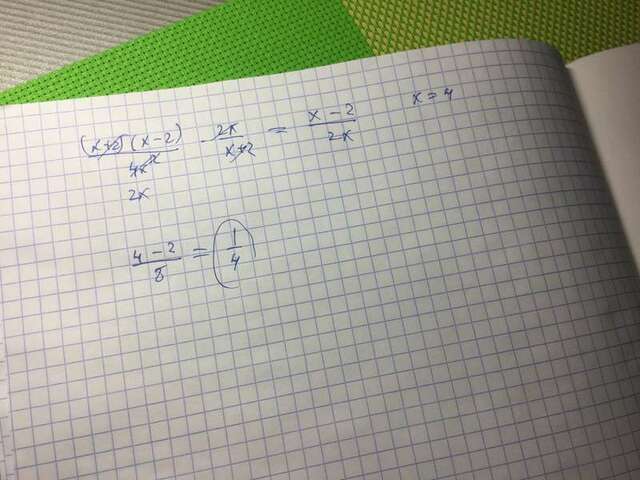 (x+2)(x-2)/4x² · 2x/x+2 = x-2/2x x=4
2x
4-2/8 = 1/4